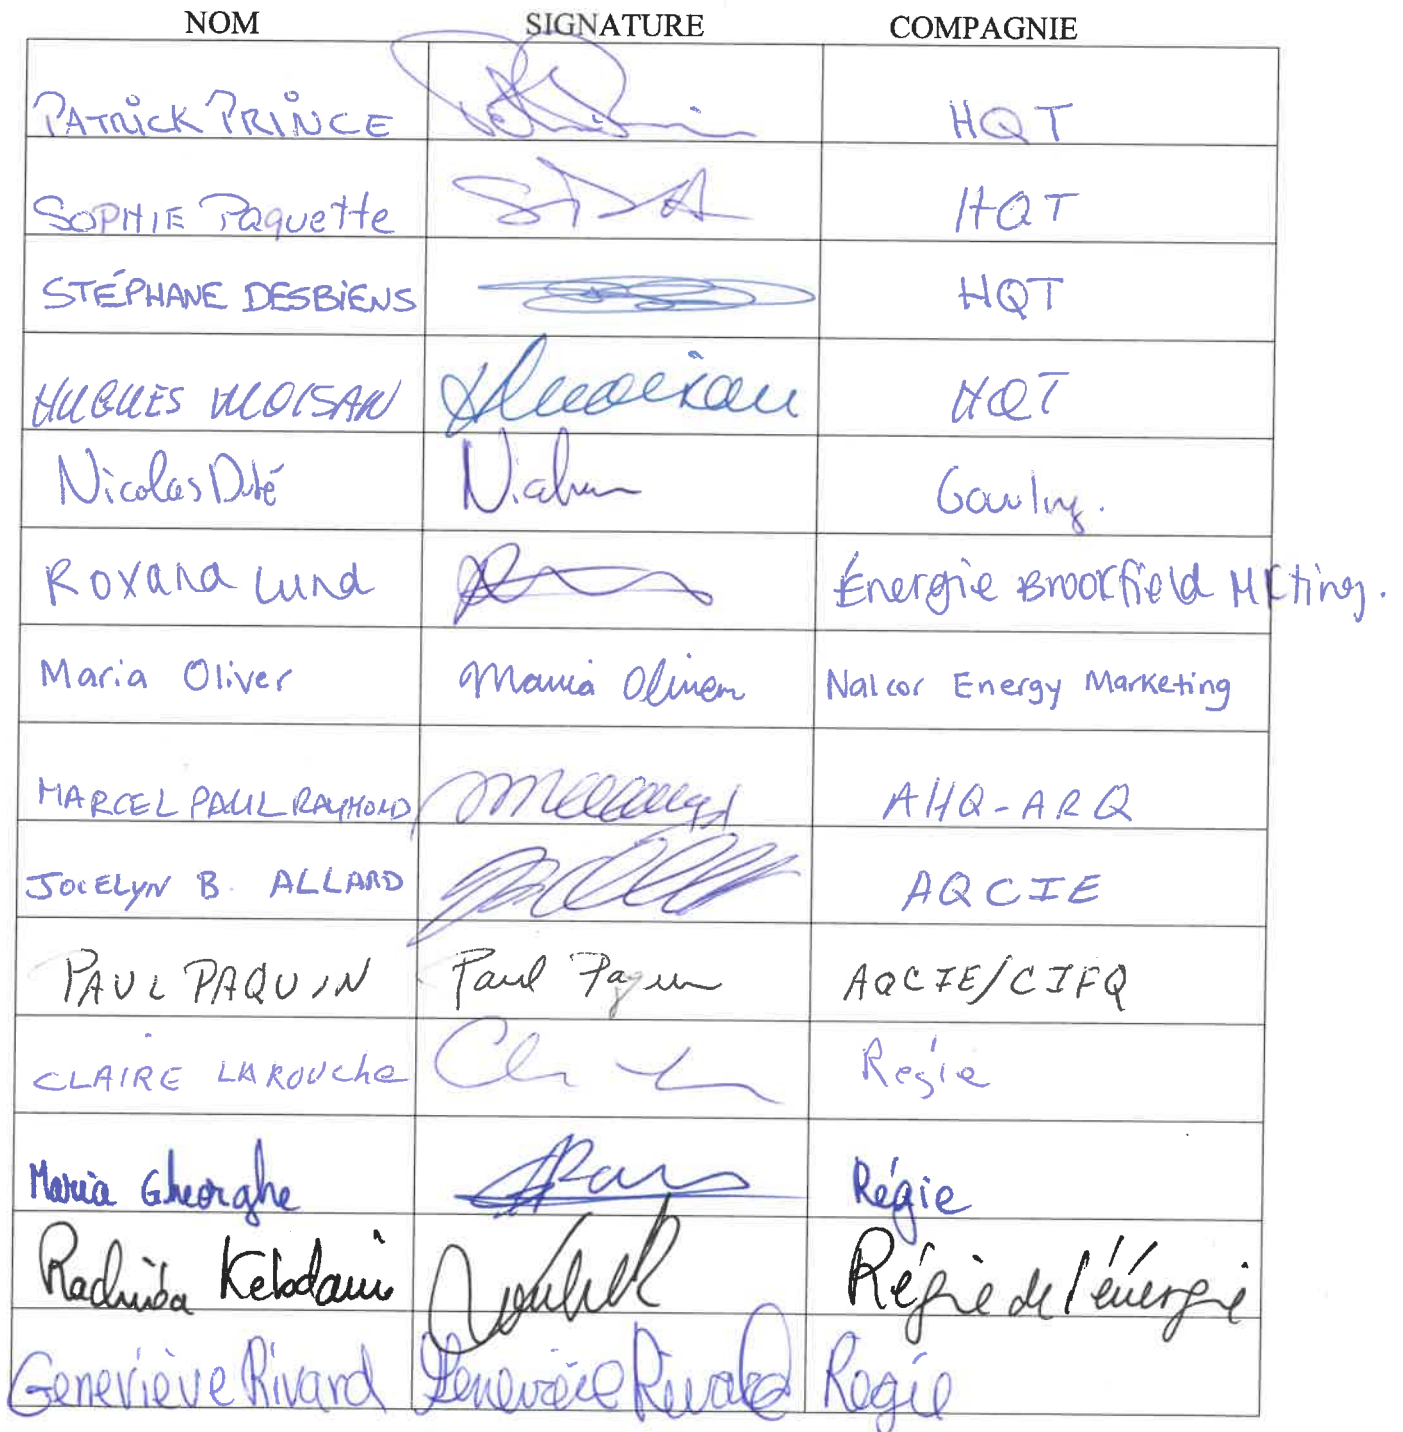 NOM SIGNATURE COMPAGNIE
PATRICK PRINCE HQT
SOPHIE Paquette HQT
STÉPHANE DESBIENS HQT
HUGUES MOISAN HMoisan HQT
Nicolas Dubé Gowling.
Roxana Lund Énergie Brookfield MKting.
Maria Oliver Maria Oliver Nalcor Energy Marketing
MARCEL PAUL RAYMOND AHQ-ARQ
JOCELYN B. ALLARD AQCIE
PAUL PAQUIN Paul Paquin AQCIE/CIFQ
CLAIRE LAROUChe Régie
Maria Gheorghe Régie
Rachida Kebdani Régie de l'énergie
Geneviève Rivard Geneviève Rivard Régie